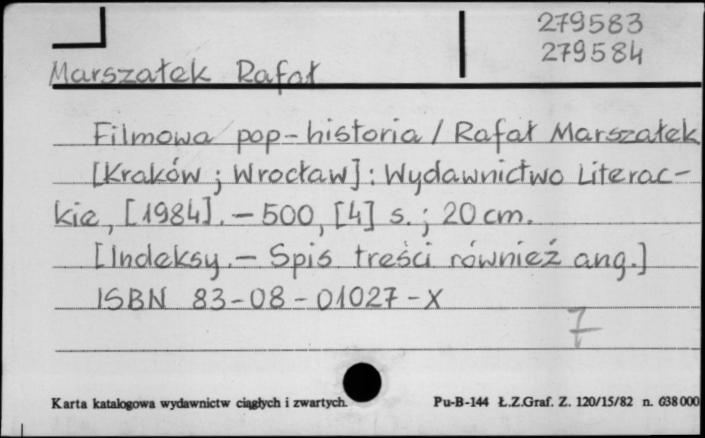 279583
279584
Marszałek Rafał
Filmowa pop-historia / Rafał Marszałek
[Kraków ; Wrocław] : Wydawnictwo Literac-
kie, [1984]. - 500, [4] s. ; 20 cm.
[Indeksy. - Spis treści również ang.]
ISBN 83-08-01027-X
7
Karta katalogowa wydawnictw ciągłych i zwartych. Pu-B-144 Ł.Z.Graf. Z. 120/15/82 n. 638 000